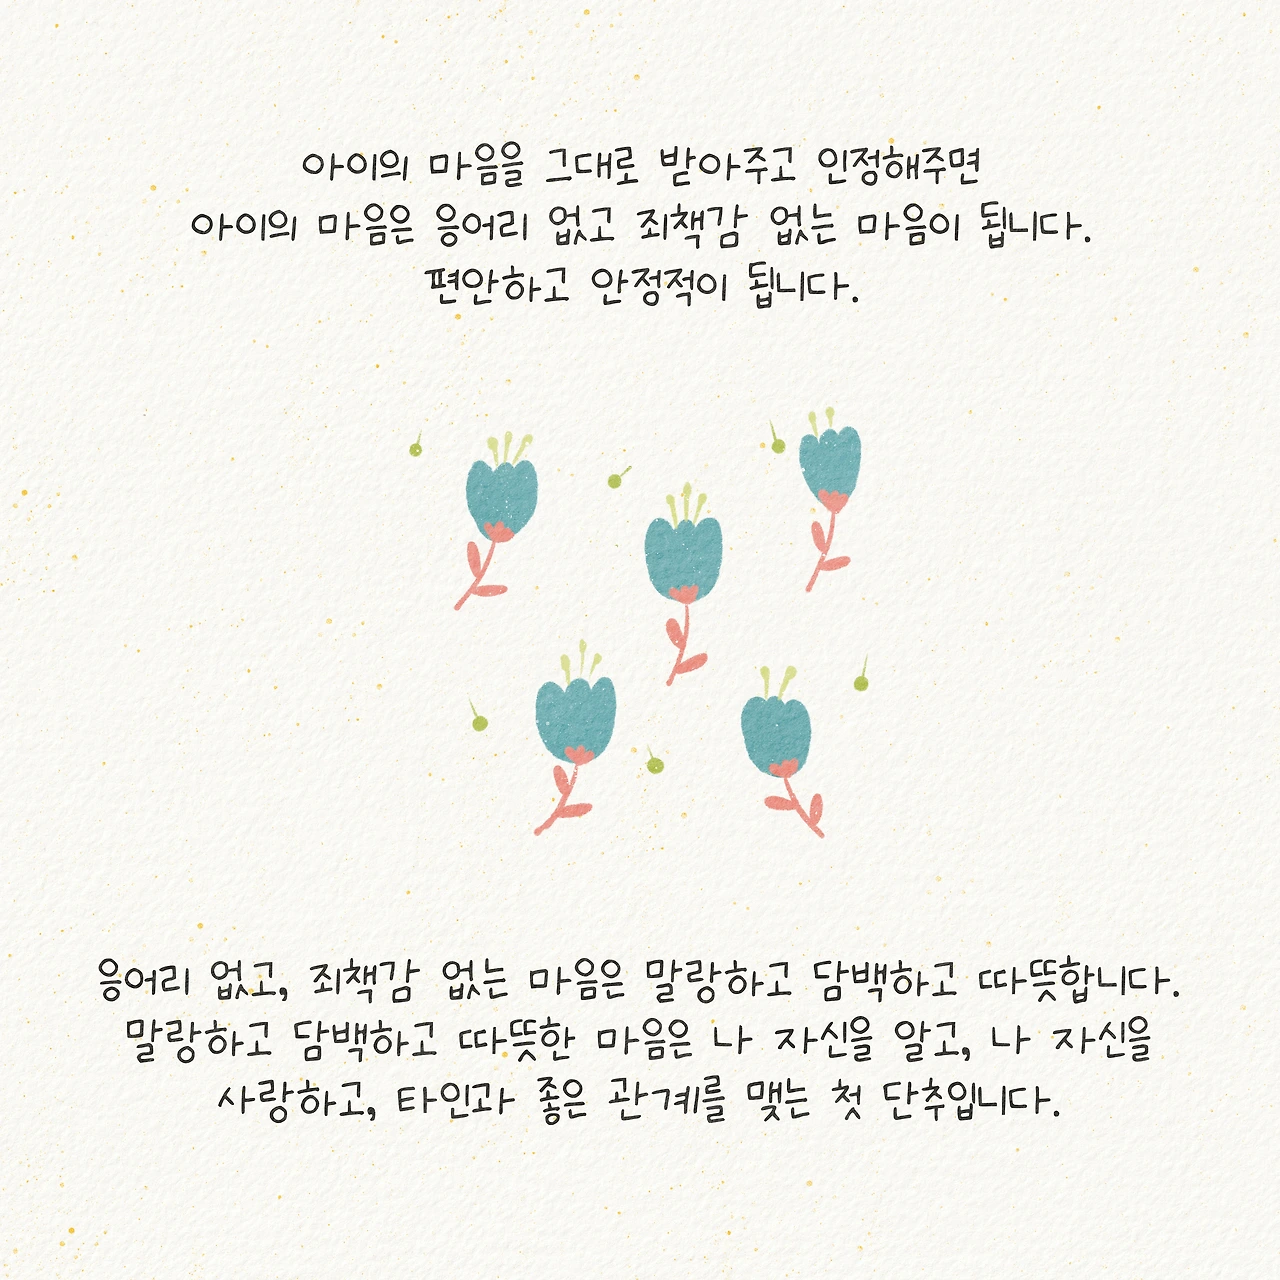 아이의 마음을 그대로 받아주고 인정해주면
아이의 마음은 응어리 없고 죄책감 없는 마음이 됩니다.
편안하고 안정적이 됩니다.
응어리 없고, 죄책감 없는 마음은 말랑하고 담백하고 따뜻합니다.
말랑하고 담백하고 따뜻한 마음은 나 자신을 알고, 나 자신을
사랑하고, 타인과 좋은 관계를 맺는 첫 단추입니다.